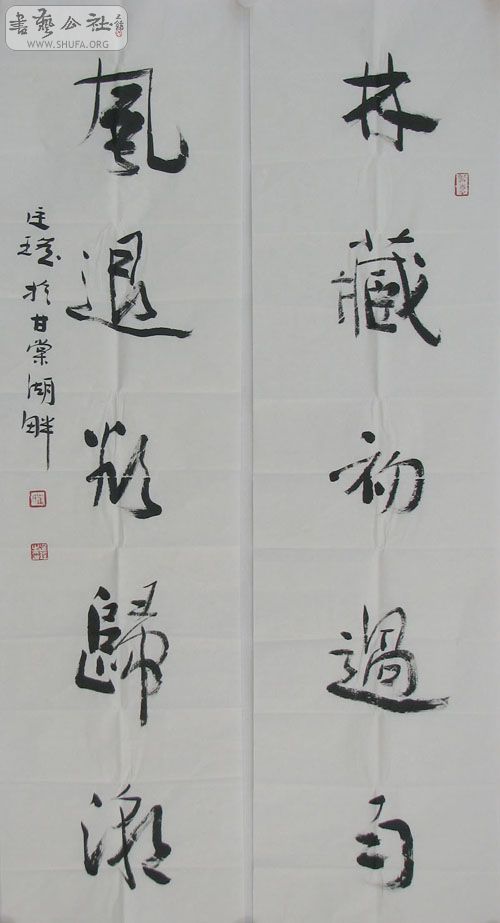 林藏初過雨
風退欲歸潮
匡瓏於甘棠湖畔
書藝公社
WWW.SHUFA.ORG